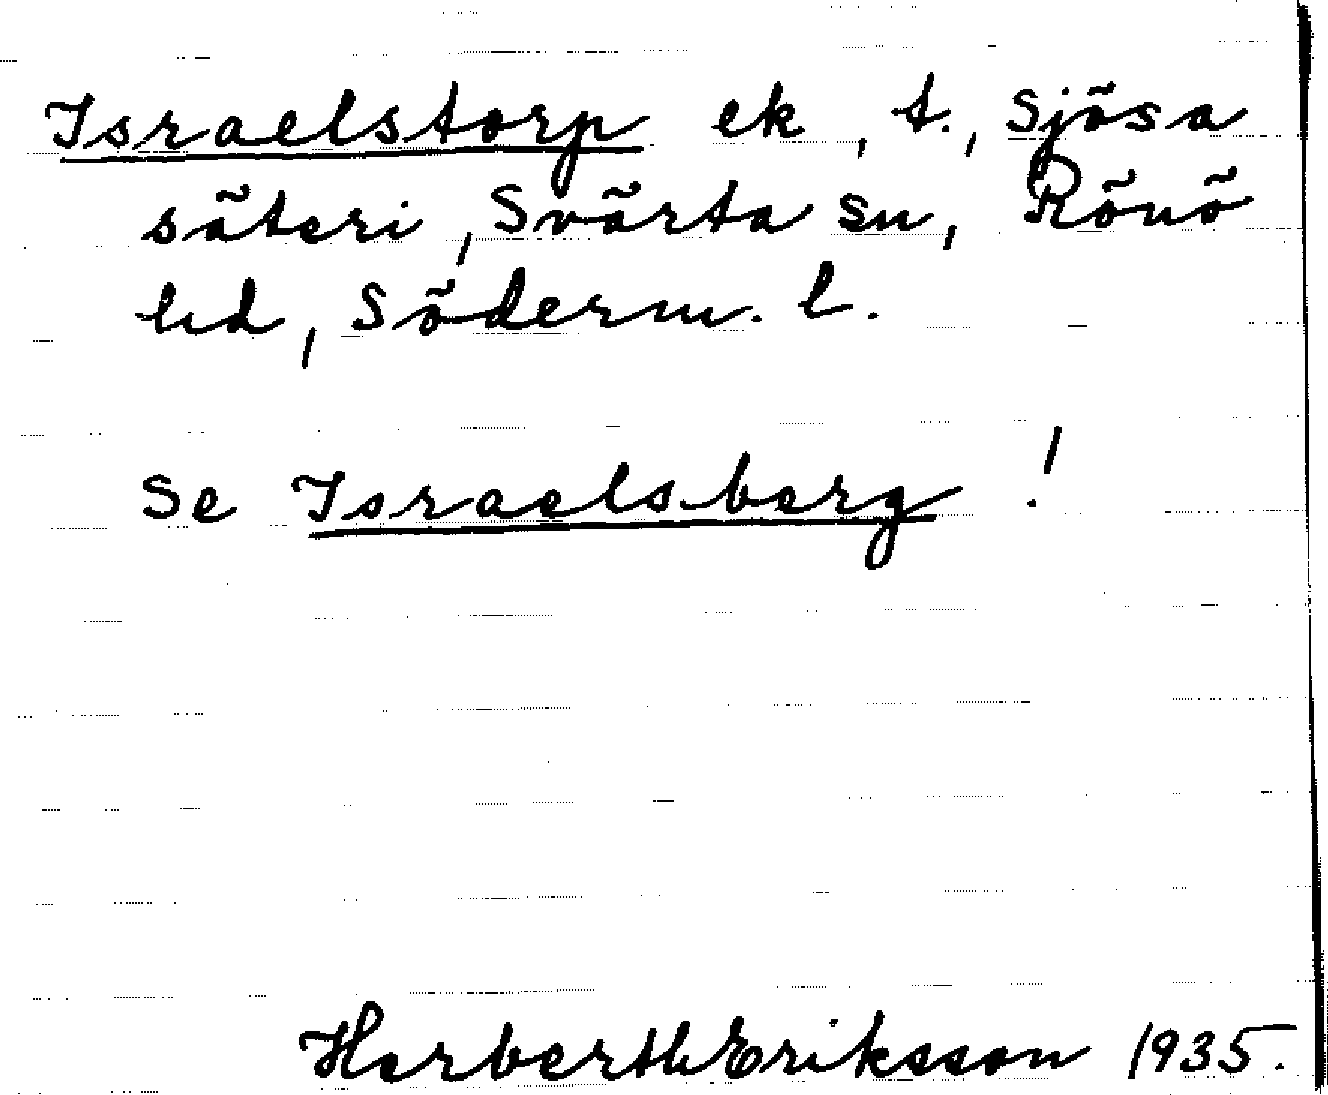 Israelstorp ek, t., Sjösa
säteri, Svärta sn, Rönö
hd, Söderm. l.
Se Israelsberg!
Herberth Eriksson 1935.